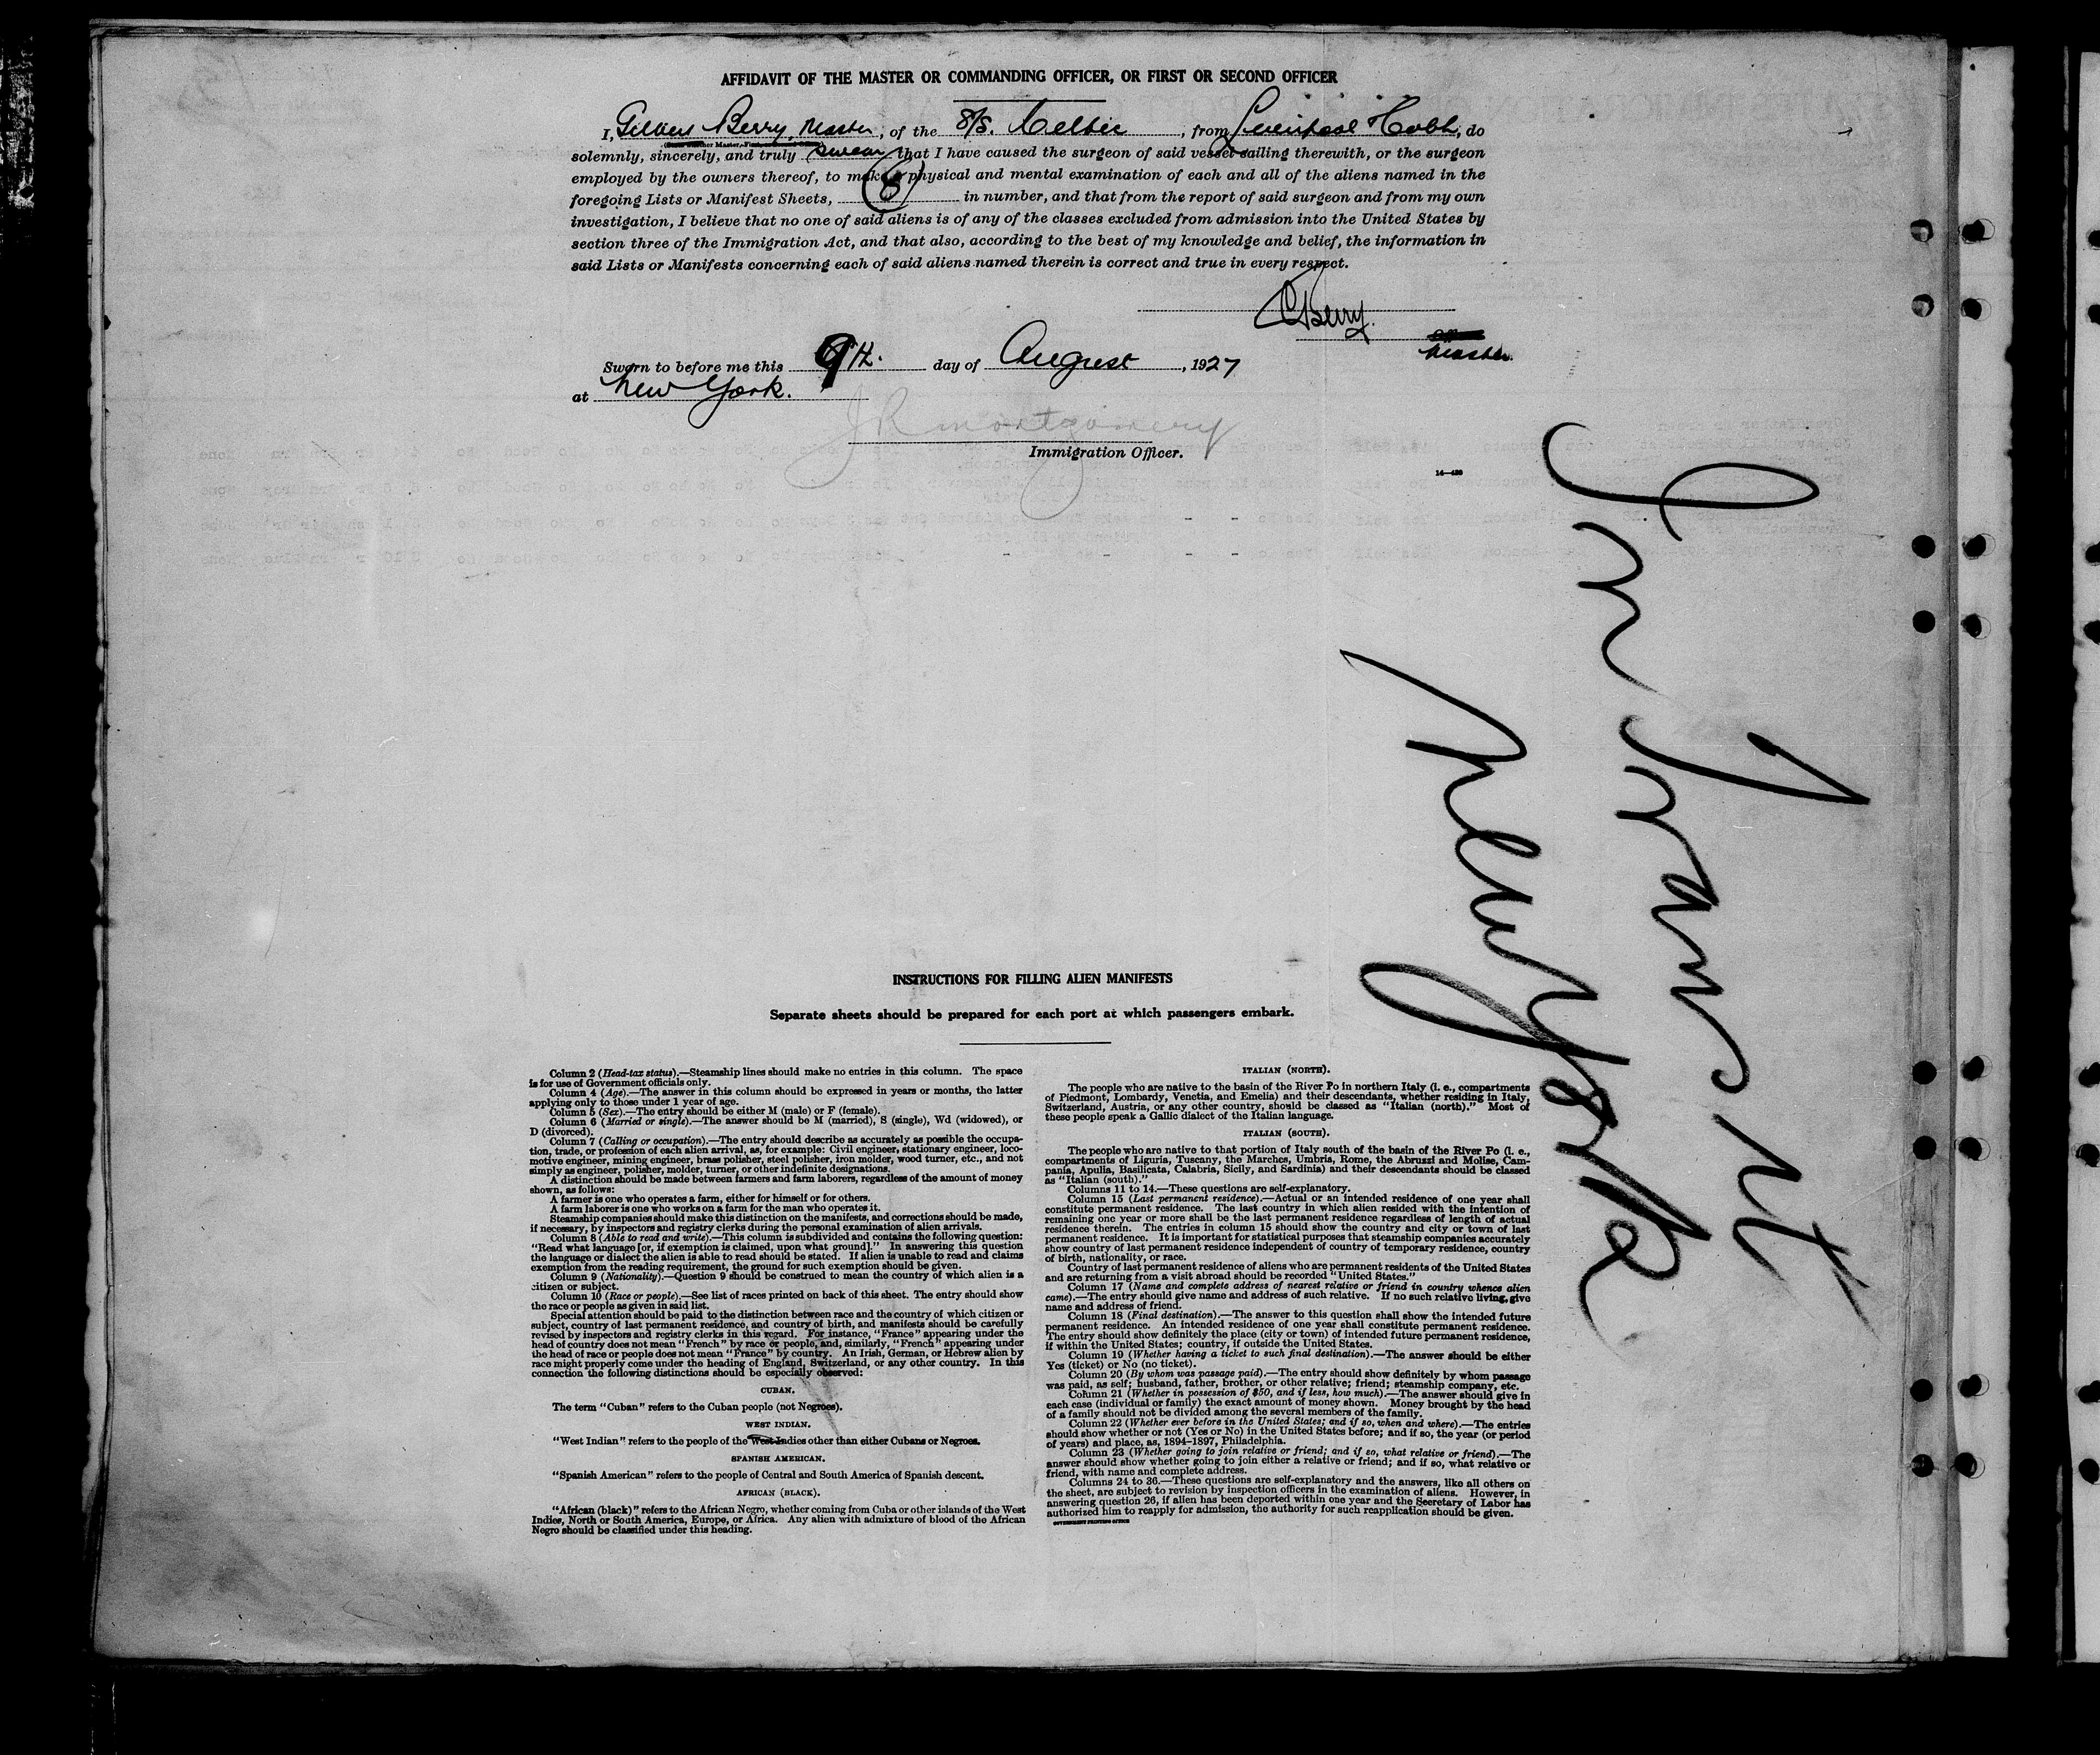 AFFIDAVIT OF THE MASTER OR COMMANDING OFFICER, OR FIRST OR SECOND OFFICER
I, Gilbert Berry, Master, of the S/S. Celtic, from Liverpool & Cobh, do
solemnly, sincerely, and truly swear that I have caused the surgeon of said vessel sailing therewith, or the surgeon
employed by the owners thereof, to make a physical and mental examination of each and all of the aliens named in the
foregoing Lists or Manifest Sheets, (6) in number, and that from the report of said surgeon and from my own
investigation, I believe that no one of said aliens is of any of the classes excluded from admission into the United States by
section three of the Immigration Act, and that also, according to the best of my knowledge and belief, the information in
said Lists or Manifests concerning each of said aliens named therein is correct and true in every respect.
GBerry.
Master.
Sworn to before me this 9th. day of August, 1927
at New York.
JR Montgomery
Immigration Officer.
14—430
In Transit
New York
INSTRUCTIONS FOR FILLING ALIEN MANIFESTS
Separate sheets should be prepared for each port at which passengers embark.
Column 2 (Head-tax status).—Steamship lines should make no entries in this column. The space
is for use of Government officials only.
Column 4 (Age).—The answer in this column should be expressed in years or months, the latter
applying only to those under 1 year of age.
Column 5 (Sex).—The entry should be either M (male) or F (female).
Column 6 (Married or single).—The answer should be M (married), S (single), Wd (widowed), or
D (divorced).
Column 7 (Calling or occupation).—The entry should describe as accurately as possible the occupa-
tion, trade, or profession of each alien arrival, as, for example: Civil engineer, stationary engineer, loco-
motive engineer, mining engineer, brass polisher, steel polisher, iron molder, wood turner, etc., and not
simply as engineer, polisher, molder, turner, or other indefinite designations.
A distinction should be made between farmers and farm laborers, regardless of the amount of money
shown, as follows:
A farmer is one who operates a farm, either for himself or for others.
A farm laborer is one who works on a farm for the man who operates it.
Steamship companies should make this distinction on the manifests, and corrections should be made,
if necessary, by inspectors and registry clerks during the personal examination of alien arrivals.
Column 8 (Able to read and write).—This column is subdivided and contains the following question:
"Read what language [or, if exemption is claimed, upon what ground]." In answering this question
the language or dialect the alien is able to read should be stated. If alien is unable to read and claims
exemption from the reading requirement, the ground for such exemption should be given.
Column 9 (Nationality).—Question 9 should be construed to mean the country of which alien is a
citizen or subject.
Column 10 (Race or people).—See list of races printed on back of this sheet. The entry should show
the race or people as given in said list.
Special attention should be paid to the distinction between race and the country of which citizen or
subject, country of last permanent residence, and country of birth, and manifests should be carefully
revised by inspectors and registry clerks in this regard. For instance, "France" appearing under the
head of country does not mean "French" by race or people, and, similarly, "French" appearing under
the head of race or people does not mean "France" by country. An Irish, German, or Hebrew alien by
race might properly come under the heading of England, Switzerland, or any other country. In this
connection the following distinctions should be especially observed:
CUBAN.
The term "Cuban" refers to the Cuban people (not Negroes).
WEST INDIAN.
"West Indian" refers to the people of the West Indies other than either Cubans or Negroes.
SPANISH AMERICAN.
"Spanish American" refers to the people of Central and South America of Spanish descent.
AFRICAN (BLACK).
"African (black)" refers to the African Negro, whether coming from Cuba or other islands of the West
Indies, North or South America, Europe, or Africa. Any alien with admixture of blood of the African
Negro should be classified under this heading.
ITALIAN (NORTH).
The people who are native to the basin of the River Po in northern Italy (i. e., compartments
of Piedmont, Lombardy, Venetia, and Emelia) and their descendants, whether residing in Italy,
Switzerland, Austria, or any other country, should be classed as "Italian (north)." Most of
these people speak a Gallic dialect of the Italian language.
ITALIAN (SOUTH).
The people who are native to that portion of Italy south of the basin of the River Po (i. e.,
compartments of Liguria, Tuscany, the Marches, Umbria, Rome, the Abruzzi and Molise, Cam-
pania, Apulia, Basilicata, Calabria, Sicily, and Sardinia) and their descendants should be classed
as "Italian (south)."
Columns 11 to 14.—These questions are self-explanatory.
Column 15 (Last permanent residence).—Actual or an intended residence of one year shall
constitute permanent residence. The last country in which alien resided with the intention of
remaining one year or more shall be the last permanent residence regardless of length of actual
residence therein. The entries in column 15 should show the country and city or town of last
permanent residence. It is important for statistical purposes that steamship companies accurately
show country of last permanent residence independent of country of temporary residence, country
of birth, nationality, or race.
Country of last permanent residence of aliens who are permanent residents of the United States
and are returning from a visit abroad should be recorded "United States."
Column 17 (Name and complete address of nearest relative or friend in country whence alien
came).—The entry should give name and address of such relative. If no such relative living, give
name and address of friend.
Column 18 (Final destination).—The answer to this question shall show the intended future
permanent residence. An intended residence of one year shall constitute permanent residence.
The entry should show definitely the place (city or town) of intended future permanent residence,
if within the United States; country, if outside the United States.
Column 19 (Whether having a ticket to such final destination).—The answer should be either
Yes (ticket) or No (no ticket).
Column 20 (By whom was passage paid).—The entry should show definitely by whom passage
was paid, as self; husband, father, brother, or other relative; friend; steamship company, etc.
Column 21 (Whether in possession of $50, and if less, how much).—The answer should give in
each case (individual or family) the exact amount of money shown. Money brought by the head
of a family should not be divided among the several members of the family.
Column 22 (Whether ever before in the United States; and if so, when and where).—The entries
should show whether or not (Yes or No) in the United States before; and if so, the year (or period
of years) and place, as, 1894–1897, Philadelphia.
Column 23 (Whether going to join relative or friend; and if so, what relative or friend).—The
answer should show whether going to join either a relative or friend; and if so, what relative or
friend, with name and complete address.
Columns 24 to 36.—These questions are self-explanatory and the answers, like all others on
the sheet, are subject to revision by inspection officers in the examination of aliens. However, in
answering question 26, if alien has been deported within one year and the Secretary of Labor has
authorized him to reapply for admission, the authority for such reapplication should be given.
GOVERNMENT PRINTING OFFICE